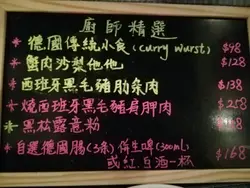 廚師精選
*德國傳統小食(curry wurst) $98
*蟹肉沙梨他他 $128
*西班牙黑毛豬肋条肉 $138
*燒西班牙黑毛豬肩胛肉 $258
*黑松露意粉
*自選德國腸(3条)併生啤(300ml)
或紅白酒一杯 $168